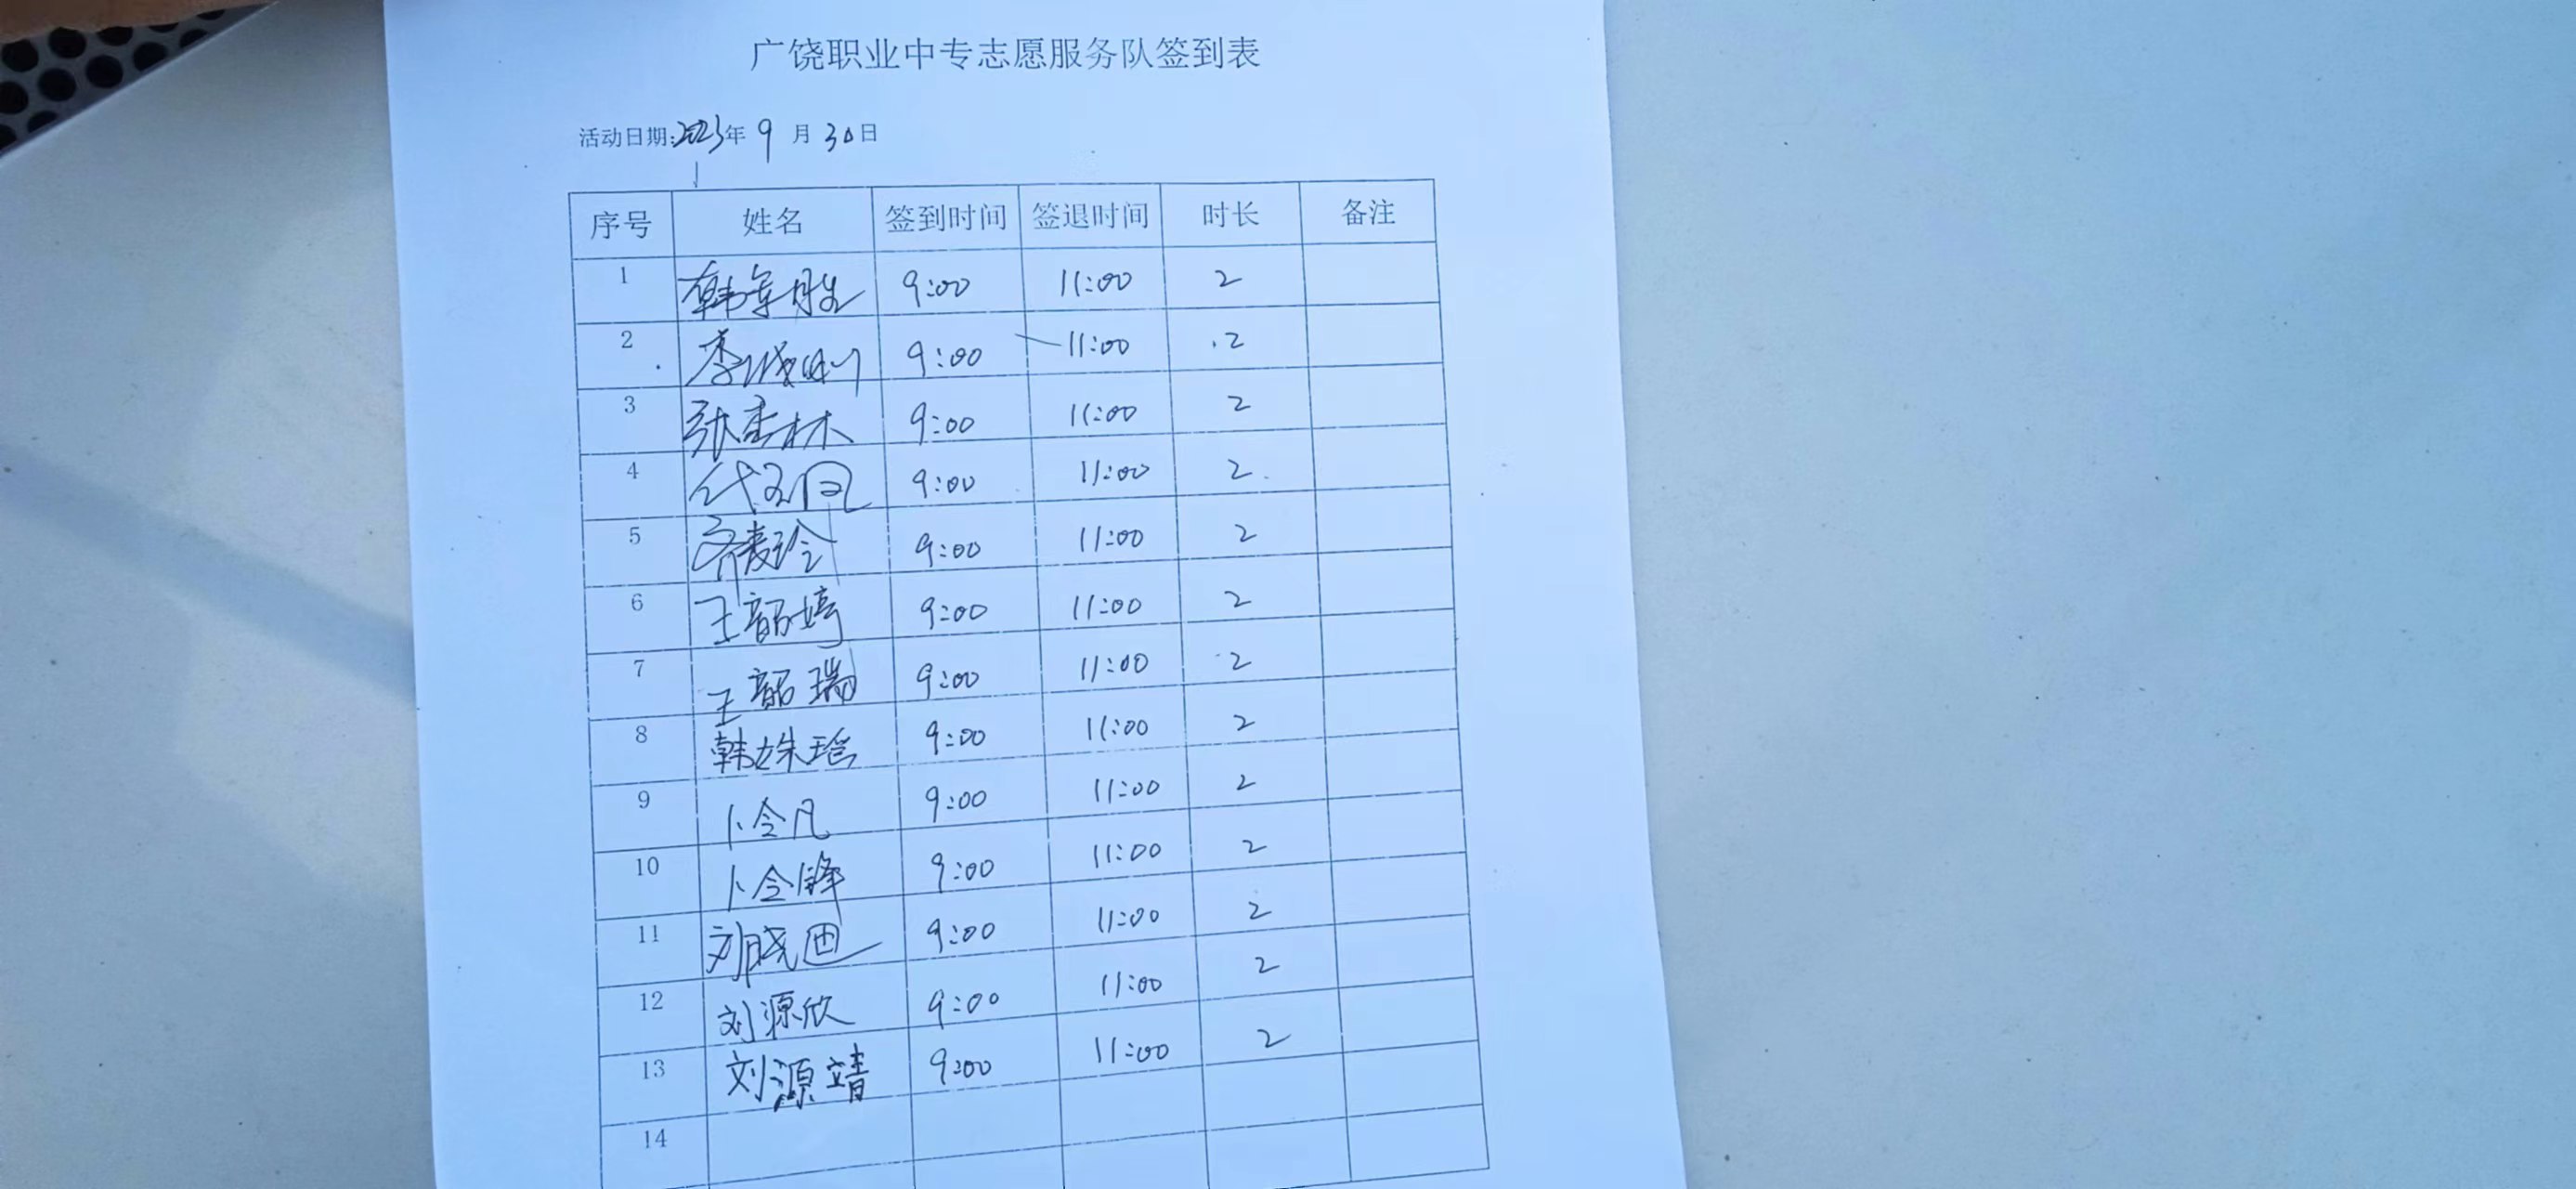 广饶职业中专志愿服务队签到表
活动日期:2023年 9 月 30日
序号 姓名 签到时间 签退时间 时长 备注
1 韩 9:00 11:00 2
2 李 9:00 11:00 2
3 张杰林 9:00 11:00 2
4 代玉凤 9:00 11:00 2
5 齐爱玲 9:00 11:00 2
6 王韶婷 9:00 11:00 2
7 王韶瑞 9:00 11:00 2
8 韩姝瑶 9:00 11:00 2
9 卜令凡 9:00 11:00 2
10 卜令锋 9:00 11:00 2
11 刘晓迪 9:00 11:00 2
12 刘源欣 9:00 11:00 2
13 刘源靖 9:00 11:00 2
14